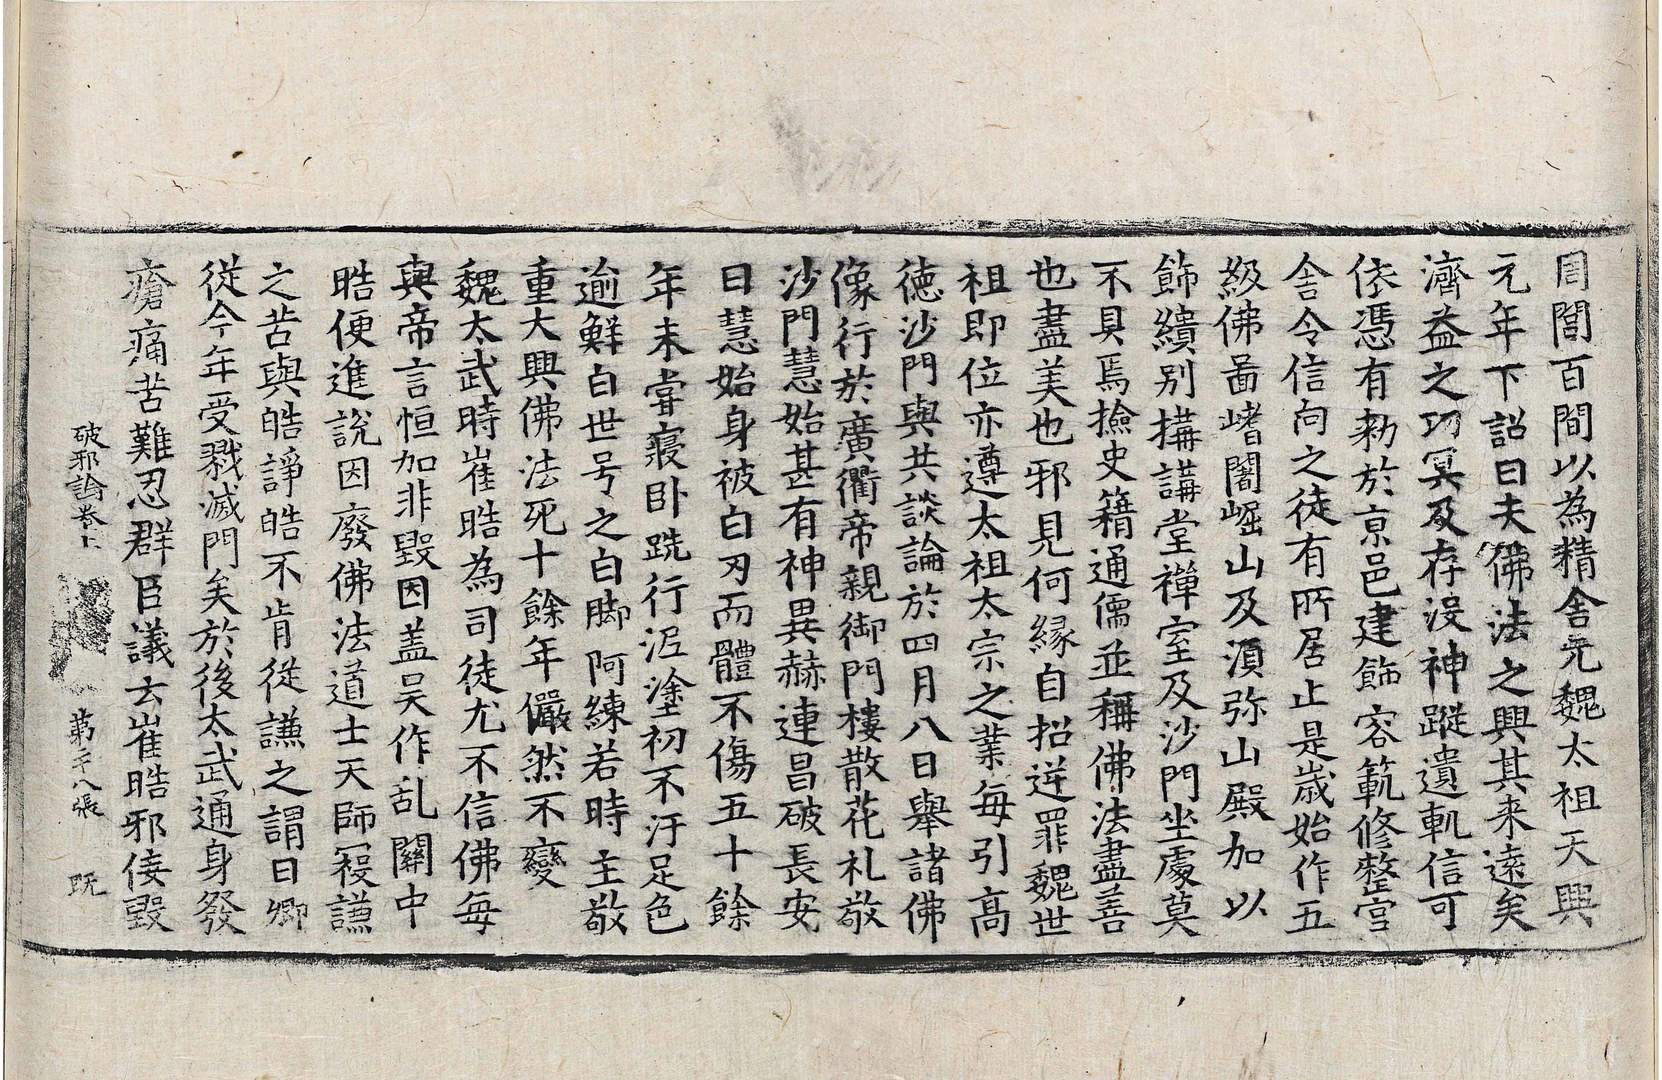 周閻百間以為精舎元魏太祖天興
元年下詔曰夫佛法之興其来遠矣
濟益之功冥及存没神蹤遺軌信可
依憑有勑於京邑建飾容範修整宫
舎令信向之徒有所居止是歳始作五
級佛啚嵴闍崛山及湏弥山殿加以
飾繢别搆講堂禪室及沙門坐處莫
不具焉撿史籍通儒並稱佛法盡善
也盡美也邪見何縁自招逆罪魏世
祖即位亦遵太祖太宗之業每引髙
徳沙門與共談論於四月八日舉諸佛
像行於廣衢帝親御門樓散花札敬
沙門慧始甚有神異赫連昌破長安
曰慧始身被白刃而體不傷五十餘
年未甞寢卧跣行泥塗初不汙足色
逾鮮白世号之白脚阿練若時主敬
重大興佛法死十餘年儼然不變
魏太武時崔晧為司徒尤不信佛每
與帝言恒加非毀因盖吴作乱關中
晧便進説因廢佛法道士天師寇謙
之苦與皓諍皓不肯從謙之謂曰卿
從今年受戮滅門矣於後太武通身發
瘡痛苦難忍群臣議云崔晧邪佞毀
破邪論巻上 第二十八張 既